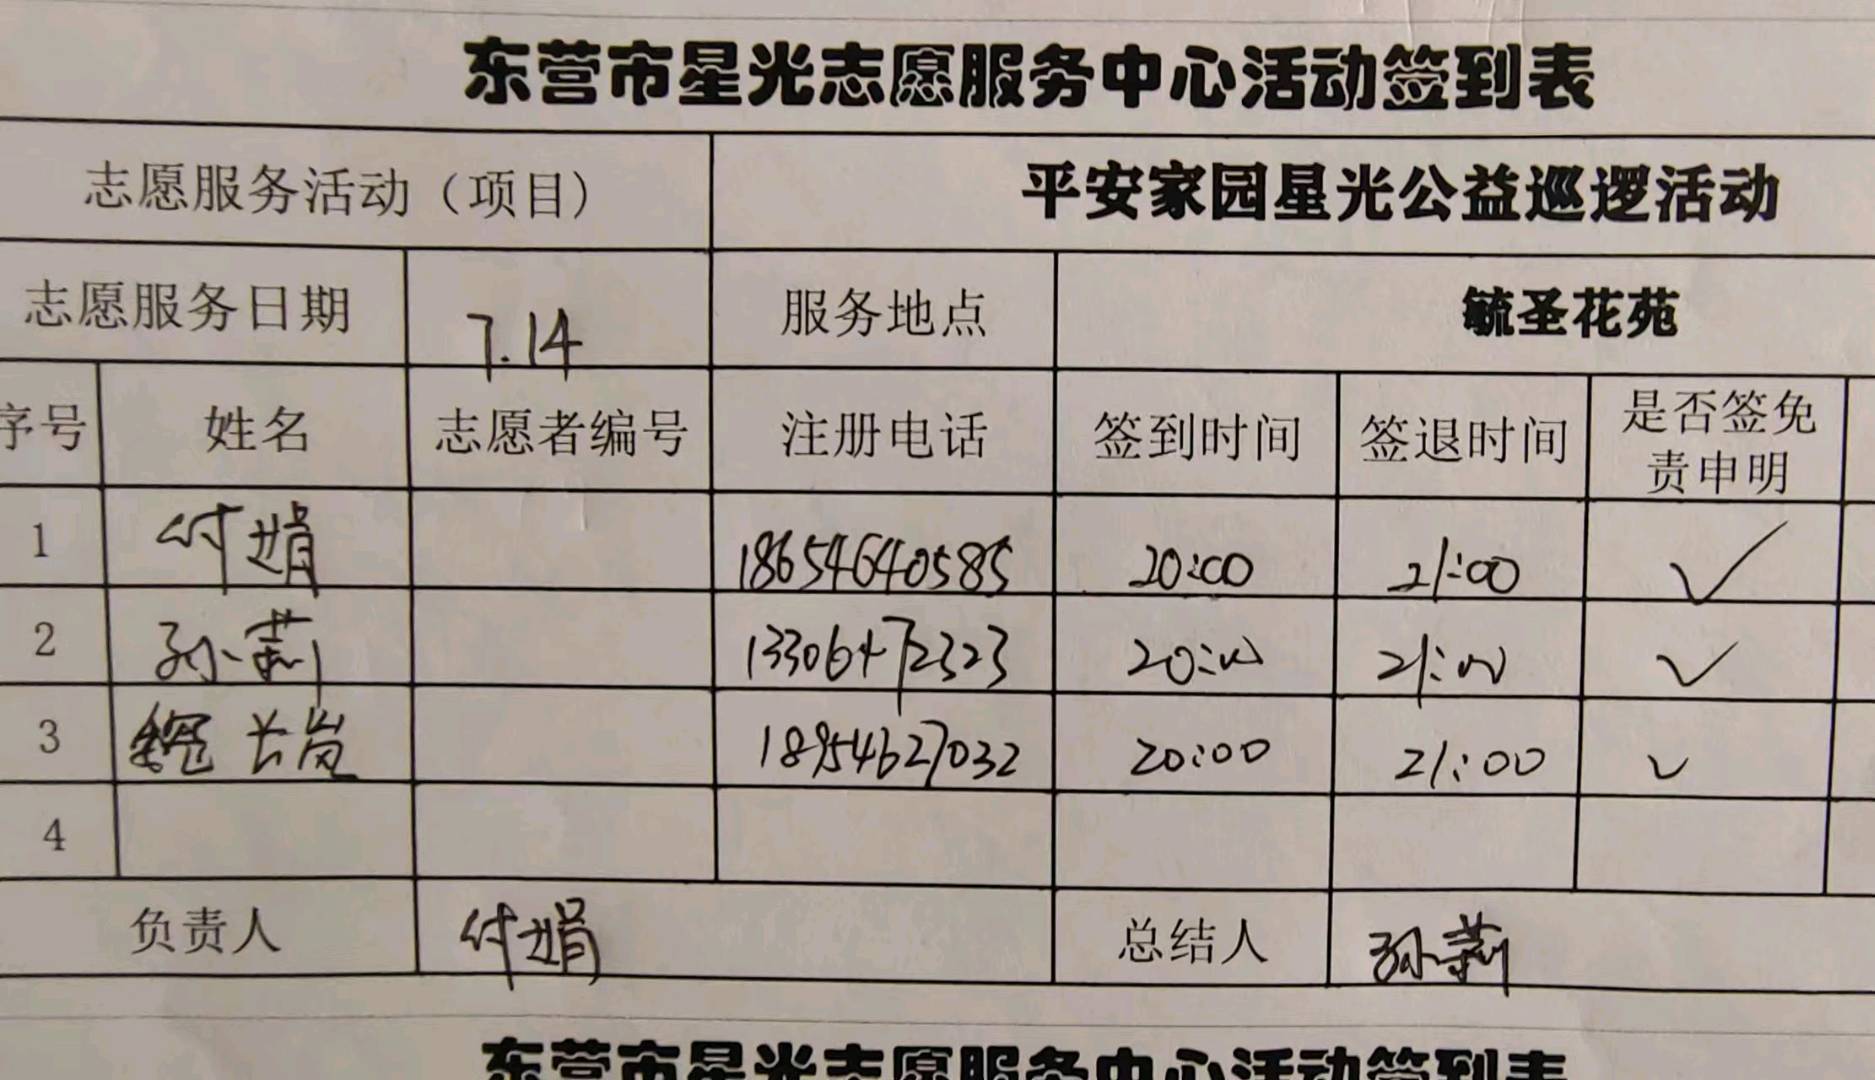 东营市星光志愿服务中心活动签到表
志愿服务活动（项目） 平安家园星光公益巡逻活动
志愿服务日期 7.14 服务地点 毓圣花苑
序号 姓名 志愿者编号 注册电话 签到时间 签退时间 是否签免责申明
1 付娟 18654640585 20:00 21:00 ✓
2 孙莉 13306472323 20:00 21:00 ✓
3 魏长岚 18954627032 20:00 21:00 ✓
4
负责人 付娟 总结人 孙莉
东营市星光志愿服务中心活动签到表